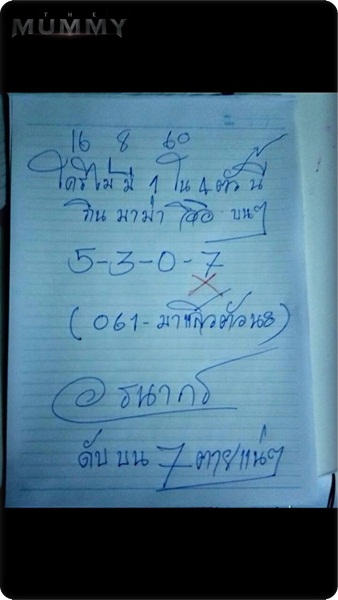 THE
MUMMY
16 8 60
ใครไม่มี 1 ใน 4 ตัวนี้
กิน มาม่า บนๆ
5-3-0-7
(061-
@ ธนากร
ดับ บน 7 ตายแน่ๆ